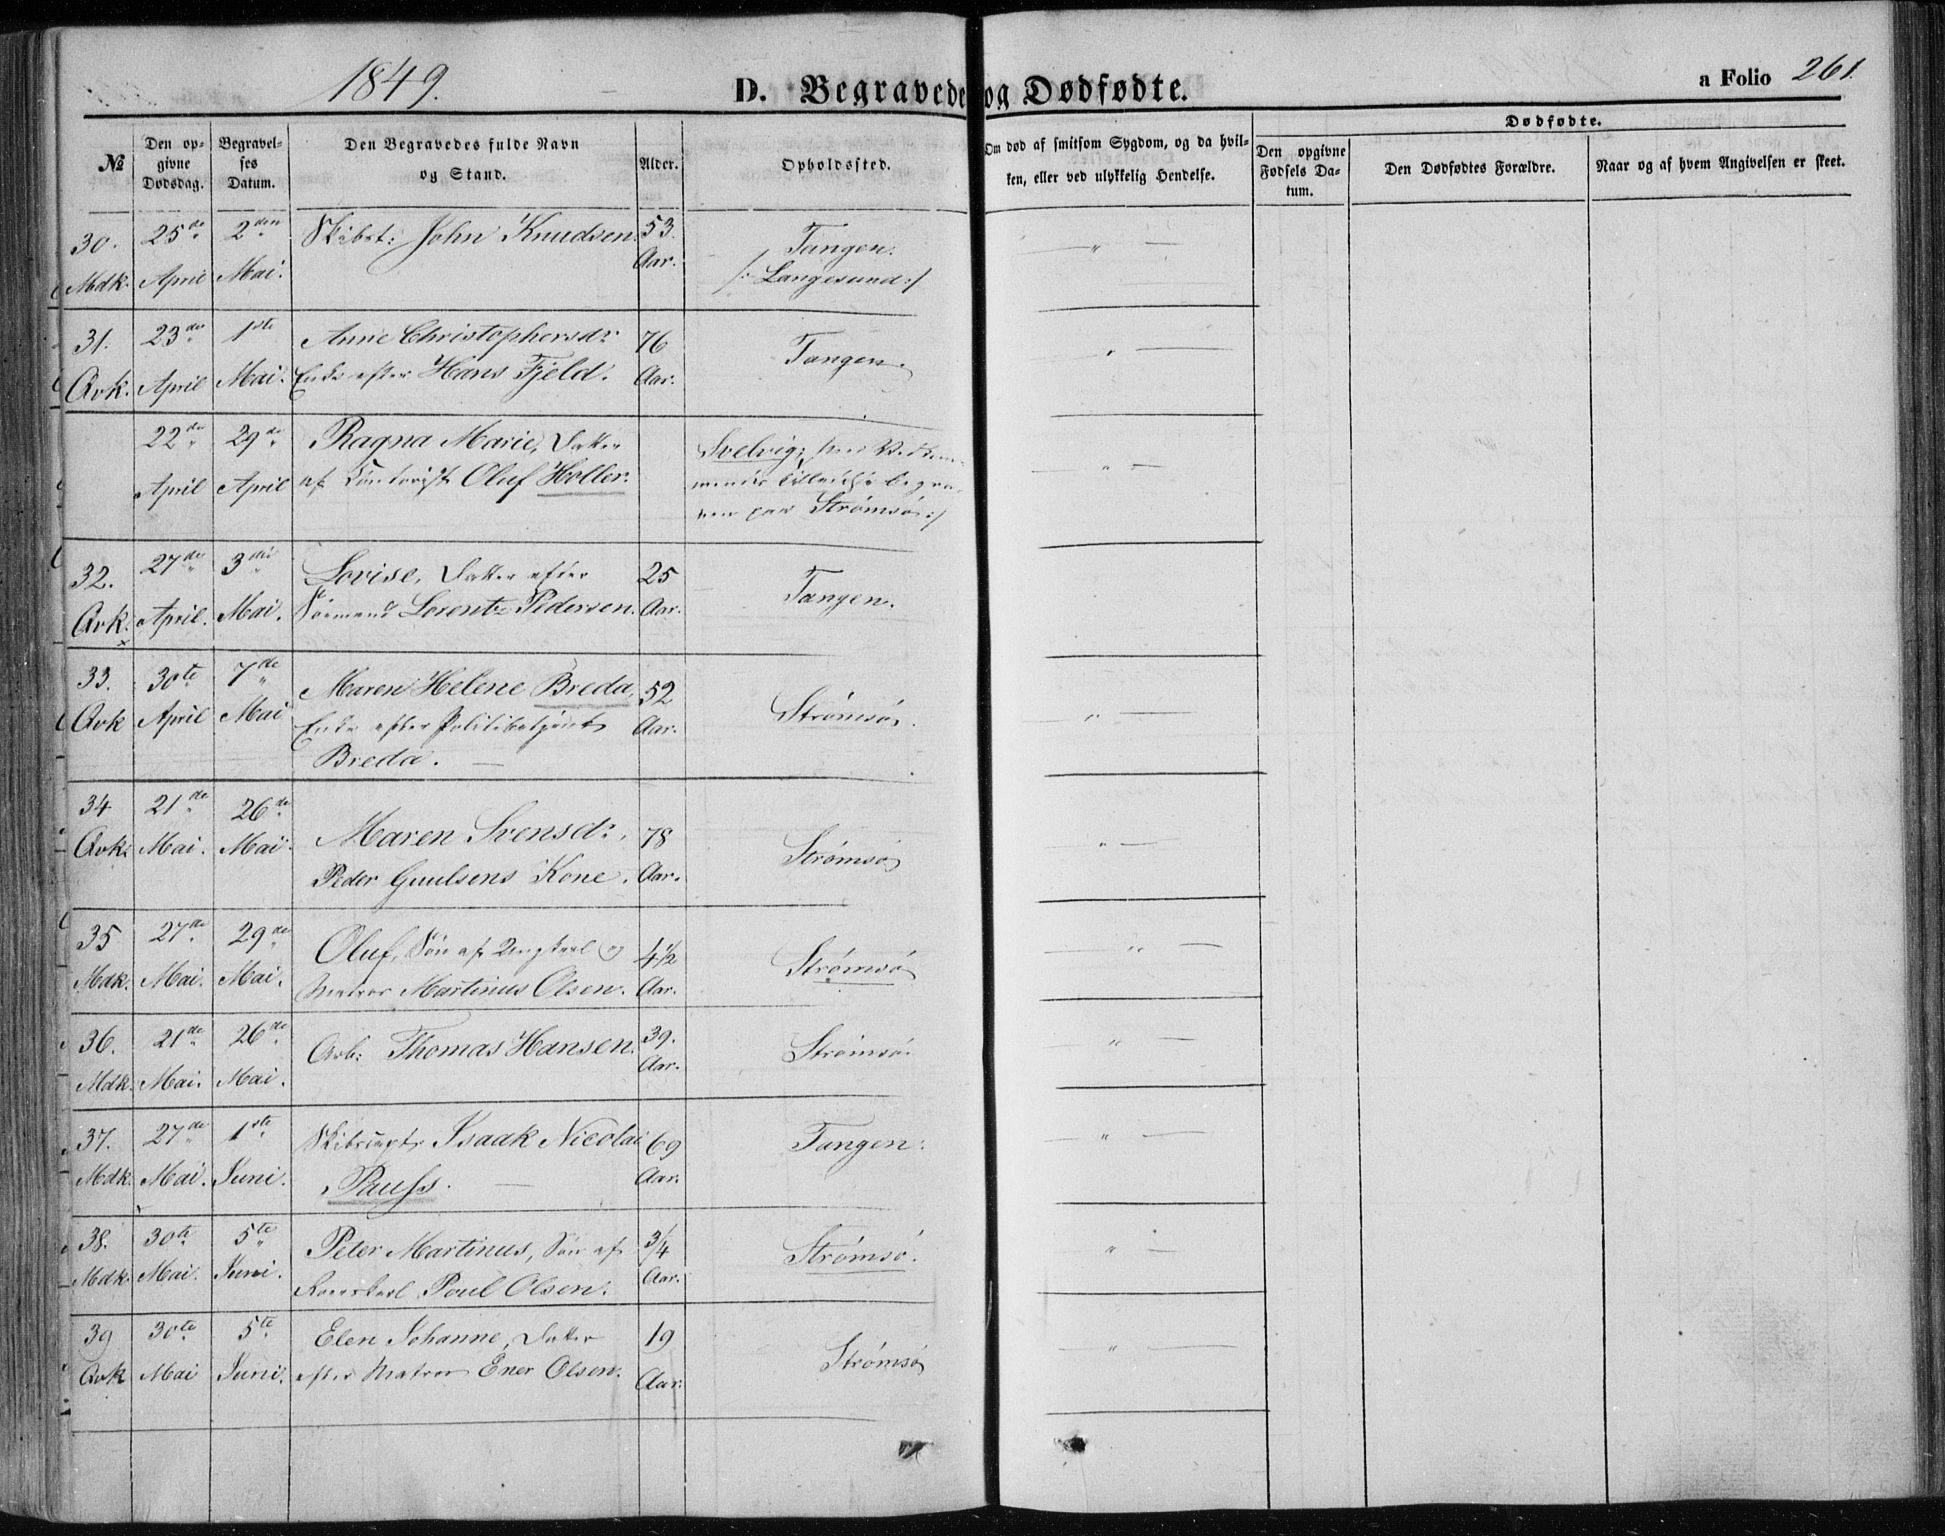 1849.
D. Begravede og Dødfødte.
a Folio 261.
№
Den opgivne Dødsdag.
Begravelses Datum.
Den Begravedes fulde Navn og Stand.
Alder.
Opholdssted.
Om død af smitsom Sygdom, og da hvilken, eller ved ulykkelig Hendelse.
Dødfødte.
Den opgivne Fødsels Datum.
Den Dødfødtes Forældre.
Naar og af hvem Angivelsen er skeet.
30. 25de 2den Skibst: John Knudsen. 53. Tangen.
Mdk. April Mai. Aar. /: Langesund :/
31. 23de 1ste Anne Christophersdr 76 Tangen.
Qvk. April Mai. Enke efter Hans Fjeld. Aar.
22de 29de Ragna Marie, Datter Svelvig;
April April af Contorist Oluf Holler. begra-
ven paa Strømsø :/
32. 27de 3die Lovise, Datter efter 25 Tangen.
Qvk. April. Mai. Sømand Lorentz Pedersen. Aar.
33. 30te 7de Maren Helene Breda, 52 Strømsø.
Qvk April Mai Enke efter Politibetjent Aar.
Breda.
34 21de 26de Maren Svensdr. 78 Strømsø
Qvk. Mai. Mai. Peder Guulsens Kone. Aar.
35 27de 29de Oluf, Søn af Ungkarl og 4½ Strømsø
Mdk. Mai. Mai. Matros Martinus Olsen. Aar.
36. 21de 26de Arb: Thomas Hansen. 39. Strømsø.
Mdk. Mai. Mai. Aar.
37. 27de 1ste Isaak Nicolai 69 Tangen.
Mdk. Mai. Juni. Pauss. Aar.
38. 30te 5te Peter Martinus, Søn af 3/4 Strømsø.
Mdk. Mai. Juni. Poul Olsen. Aar.
39 30te 5te Elen Johanne, Datter 19 Strømsø
Qvk Mai Juni. efter Matros Ener Olsen. Aar.